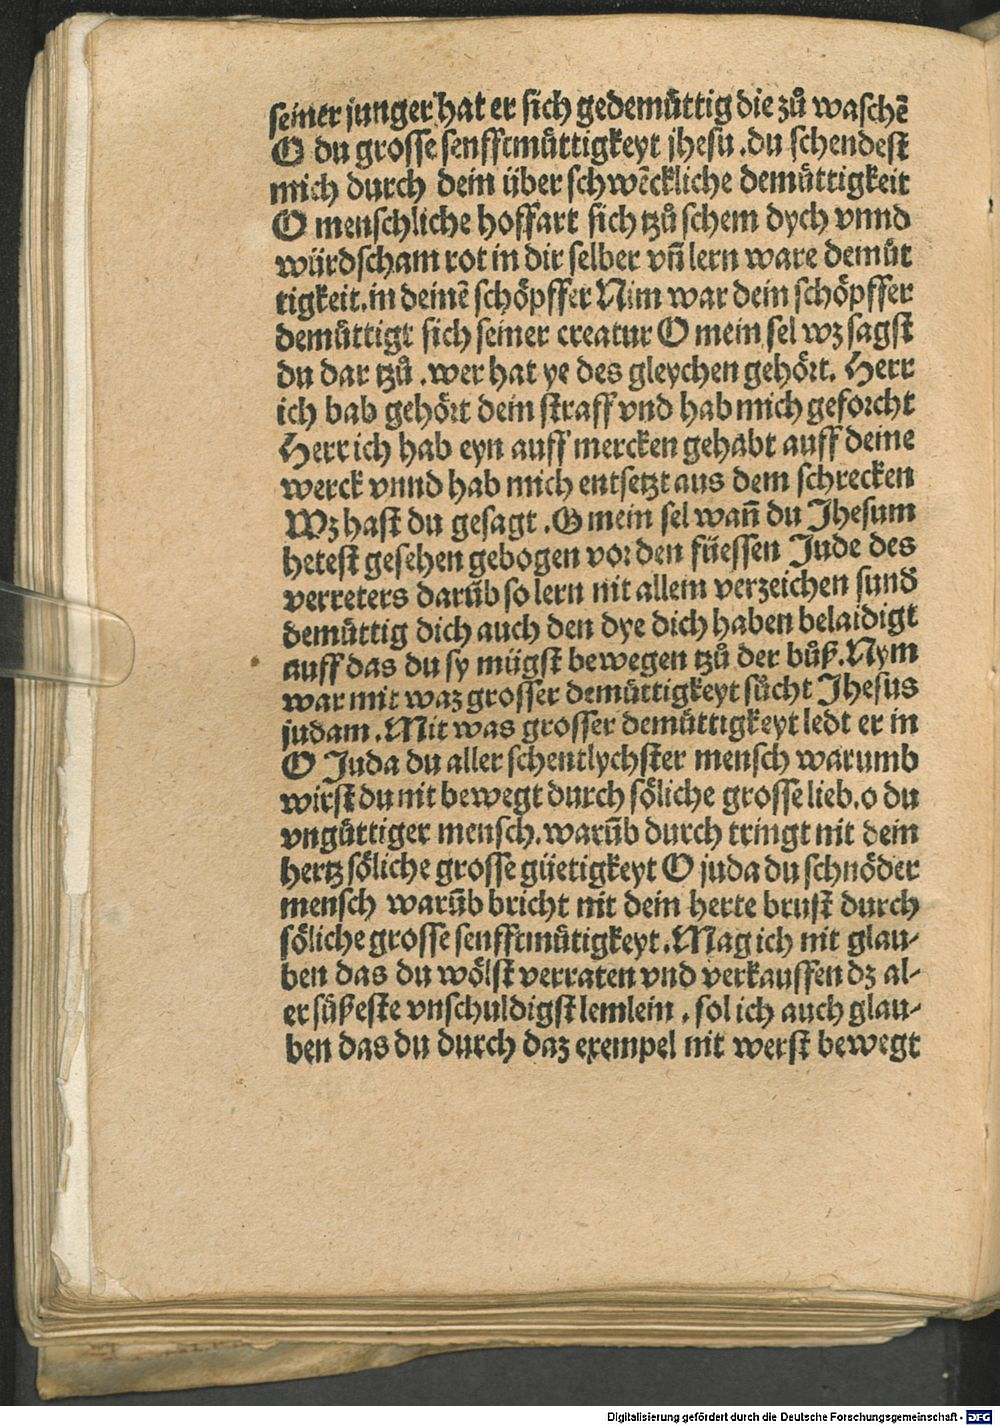 seiner junger hat er sich gedemüttig die zů waschē
O du grosse senfftmüttigkeyt jhesu .du schendest
mich durch dein über schwēckliche demüttigkeit
O menschliche hoffart sich tzů schem dych vnnd
würdscham rot in dir selber vn̄ lern ware demüt
tigkeit.in deinē schöpffer Nim war dein schöpffer
demüttigt sich seiner creatur O mein sel wz sagst
du dar tzů .wer hat ye des gleychen gehört. Herr
ich bab gehört dein straff vnd hab mich geforcht
Herr ich hab eyn auff mercken gehabt auff deine
werck vnnd hab mich entsetzt aus dem schrecken
Wz hast du gesagt .O mein sel wan̄ du Jhesum
hetest gesehen gebogen vor den füessen Jude des
verreters darūb so lern nit allem verzeichen sund
demüttig dich auch den dye dich haben belaidigt
auff das du sy mügst bewegen tzů der bůß.Nym
war mit waz grosser demüttigkeyt sůcht Jhesus
judam .Mit was grosser demüttigkeyt ledt er in
O Juda du aller schentlychster mensch warumb
wirst du nit bewegt durch söliche grosse lieb.o du
vngüttiger mensch.warūb durch tringt nit dein
hertz söliche grosse güetigkeyt O juda du schnöder
mensch warūb bricht nit dein herte brust durch
söliche grosse senfftmütigkeyt.Mag ich nit glau-
ben das du wölst verraten vnd verkauffen dz al-
er süßeste vnschuldigst lemlein . sol ich auch glau-
ben das du durch daz exempel nit werst bewegt
Digitalisierung gefördert durch die Deutsche Forschungsgemeinschaft - DFG